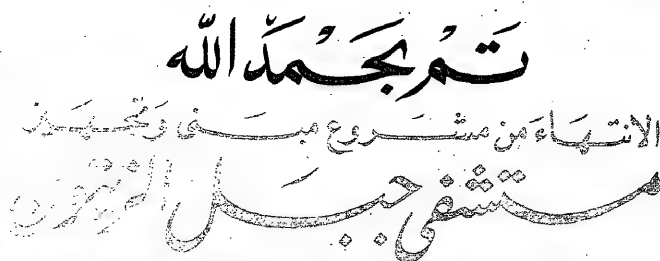 تم بحمد الله
الانتهاء من مشروع مبنى وتجهيز
مستشفى جبل الزيتون